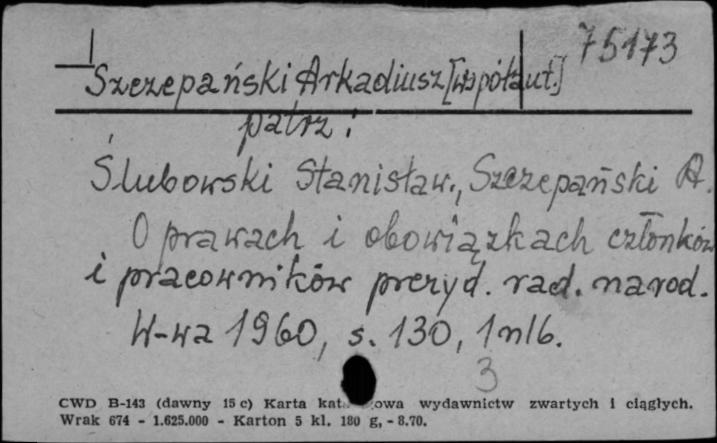 75173
Szczepański Arkadiusz [współaut.]
patrz:
Ślubowski Stanisław., Szczepański A.
O prawach i obowiązkach członków
i pracowników prezyd. rad. narod.
W-wa 1960, s. 130, 1 nlb.
3
CWD B-143 (dawny 15 c) Karta wydawnictw zwartych i ciągłych.
Wrak 674 - 1.625.000 - Karton 5 kl. 180 g, - 8.70.